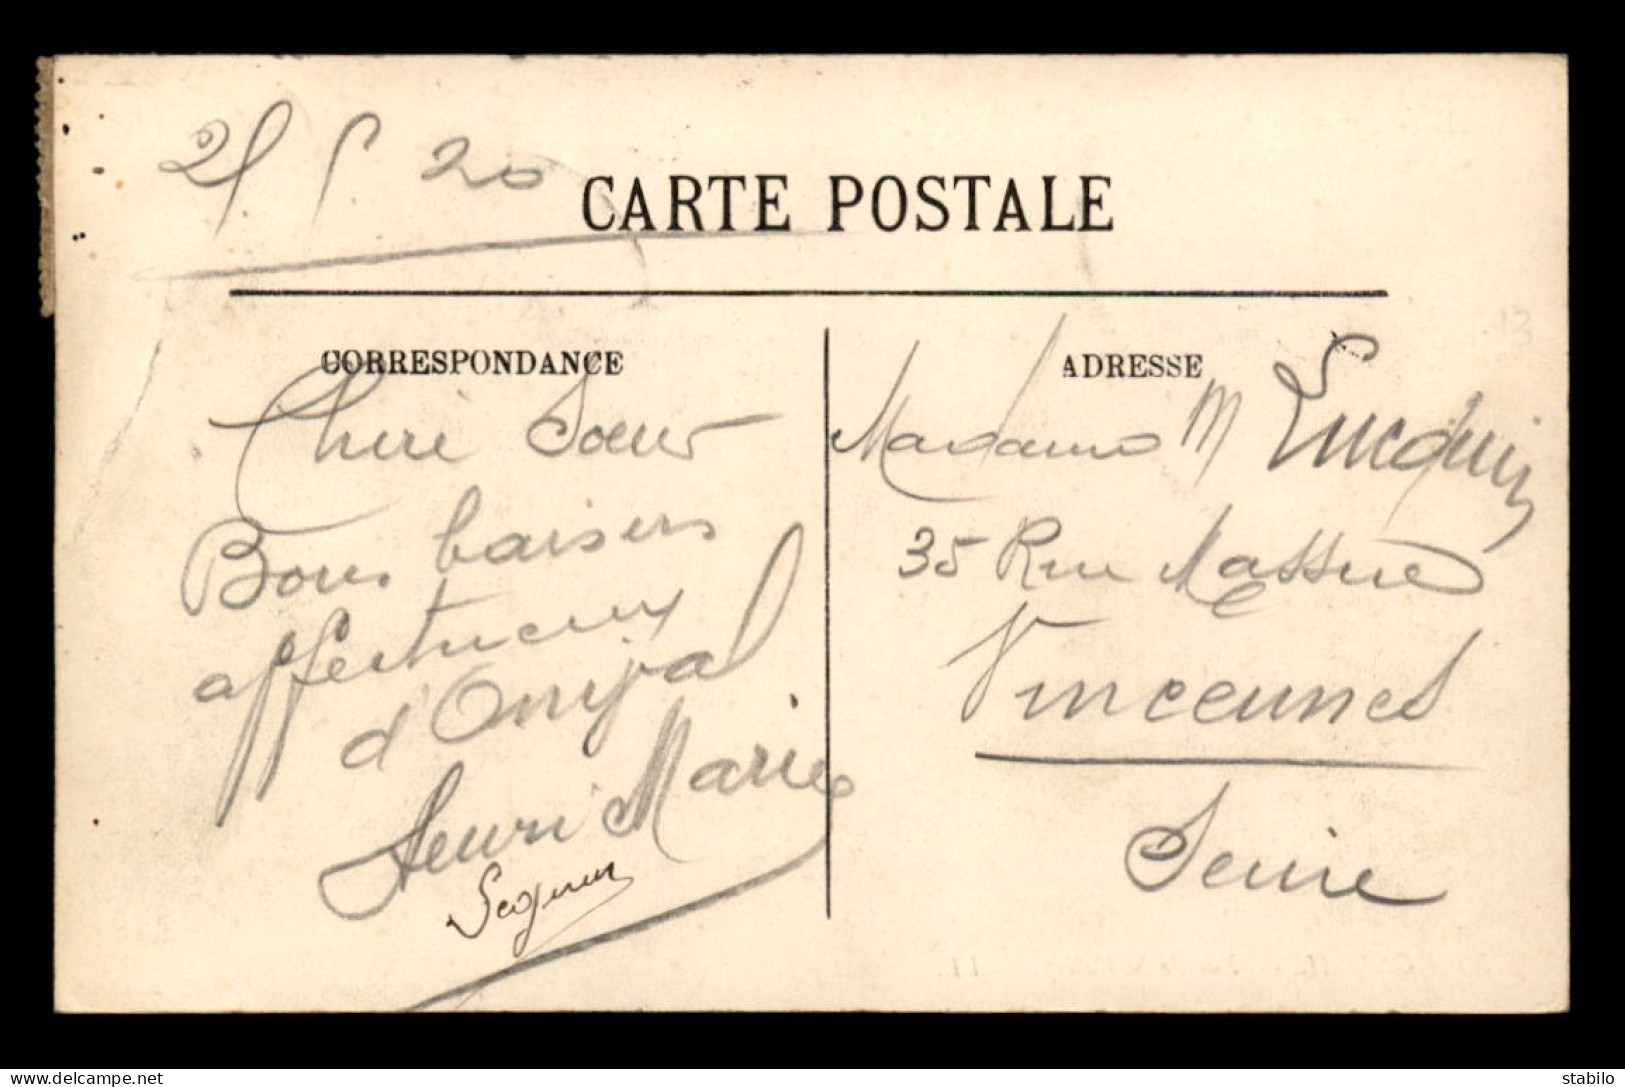 25 5 20
CARTE POSTALE
CORRESPONDANCE
Chere Soeur
Bons baisers
affectueux
d'
Henri Marie
ADRESSE
Madame M
35 Rue Massue
Vincennes
Seine
13
www.delcampe.net
stabilo